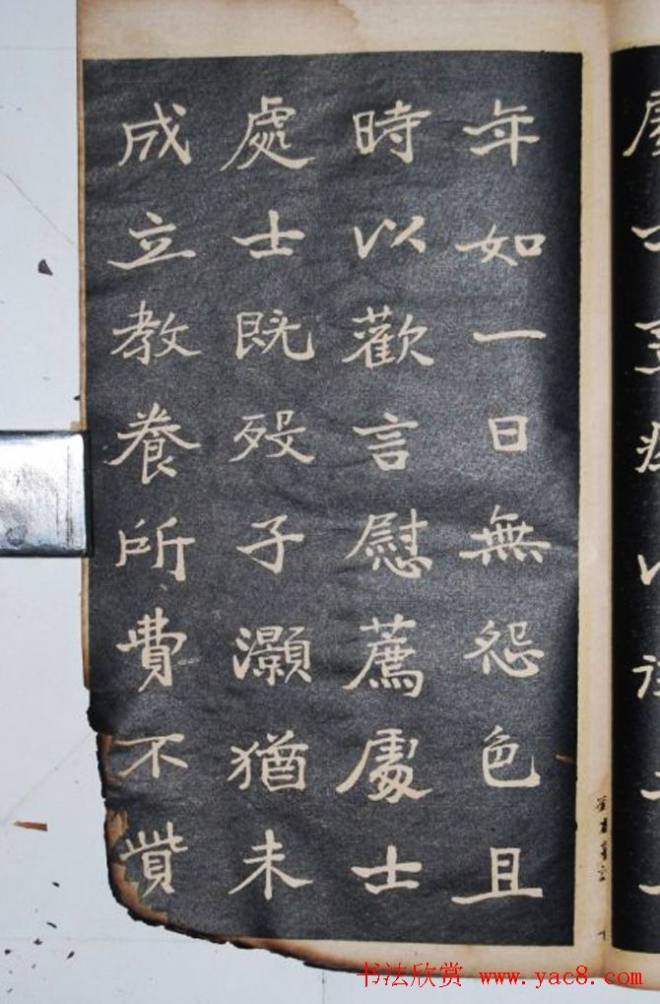 年如一日無怨色且
時以歡言慰薦處士
處士既歿子灝猶未
成立教養所費不貲
书法欣赏 www.yac8.com